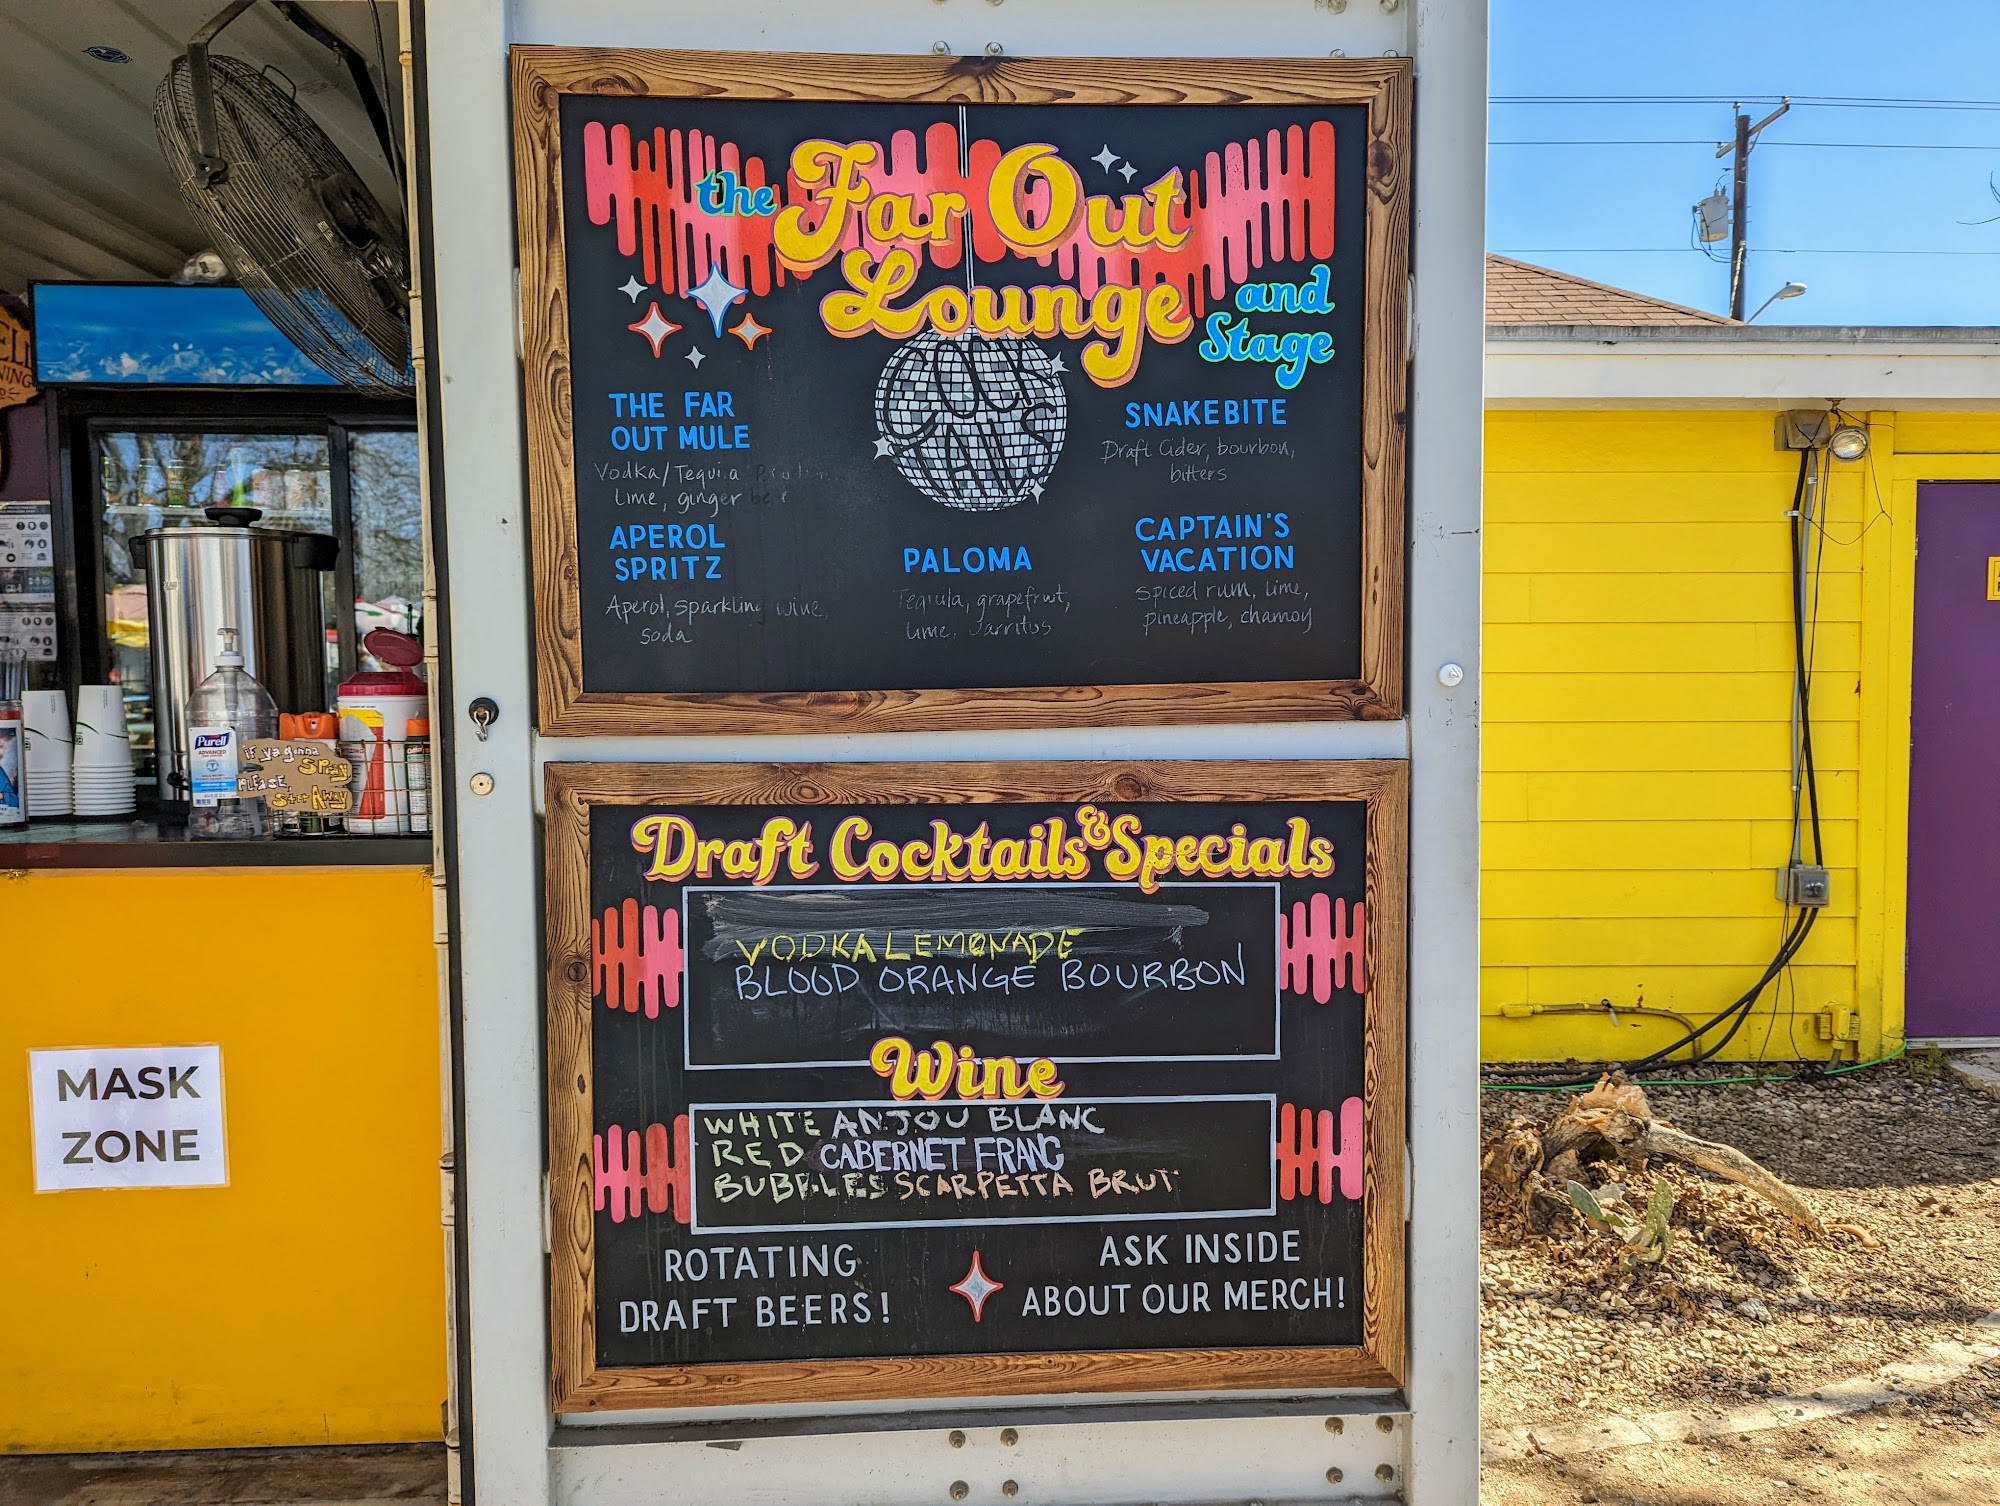 the Far Out
Lounge
and
Stage
COCK
TAILS
THE FAR
OUT MULE
Vodka/Tequila
Lime, ginger
APEROL
SPRITZ
Aperol, sparkling wine,
soda
PALOMA
Tequila, grapefruit,
Lime, Jarritos
SNAKEBITE
Draft Cider, bourbon,
bitters
CAPTAIN'S
VACATION
Spiced rum, lime,
pineapple, chamoy
Draft Cocktails & Specials
VODKA LEMONADE
BLOOD ORANGE BOURBON
Wine
WHITE ANJOU BLANC
RED CABERNET FRANC
BUBBLES SCARPETTA BRUT
ROTATING
DRAFT BEERS!
ASK INSIDE
ABOUT OUR MERCH!
Purell
ADVANCED
if ya gonna
SPRAY
PLEASE,
STEP AWAY
MASK
ZONE